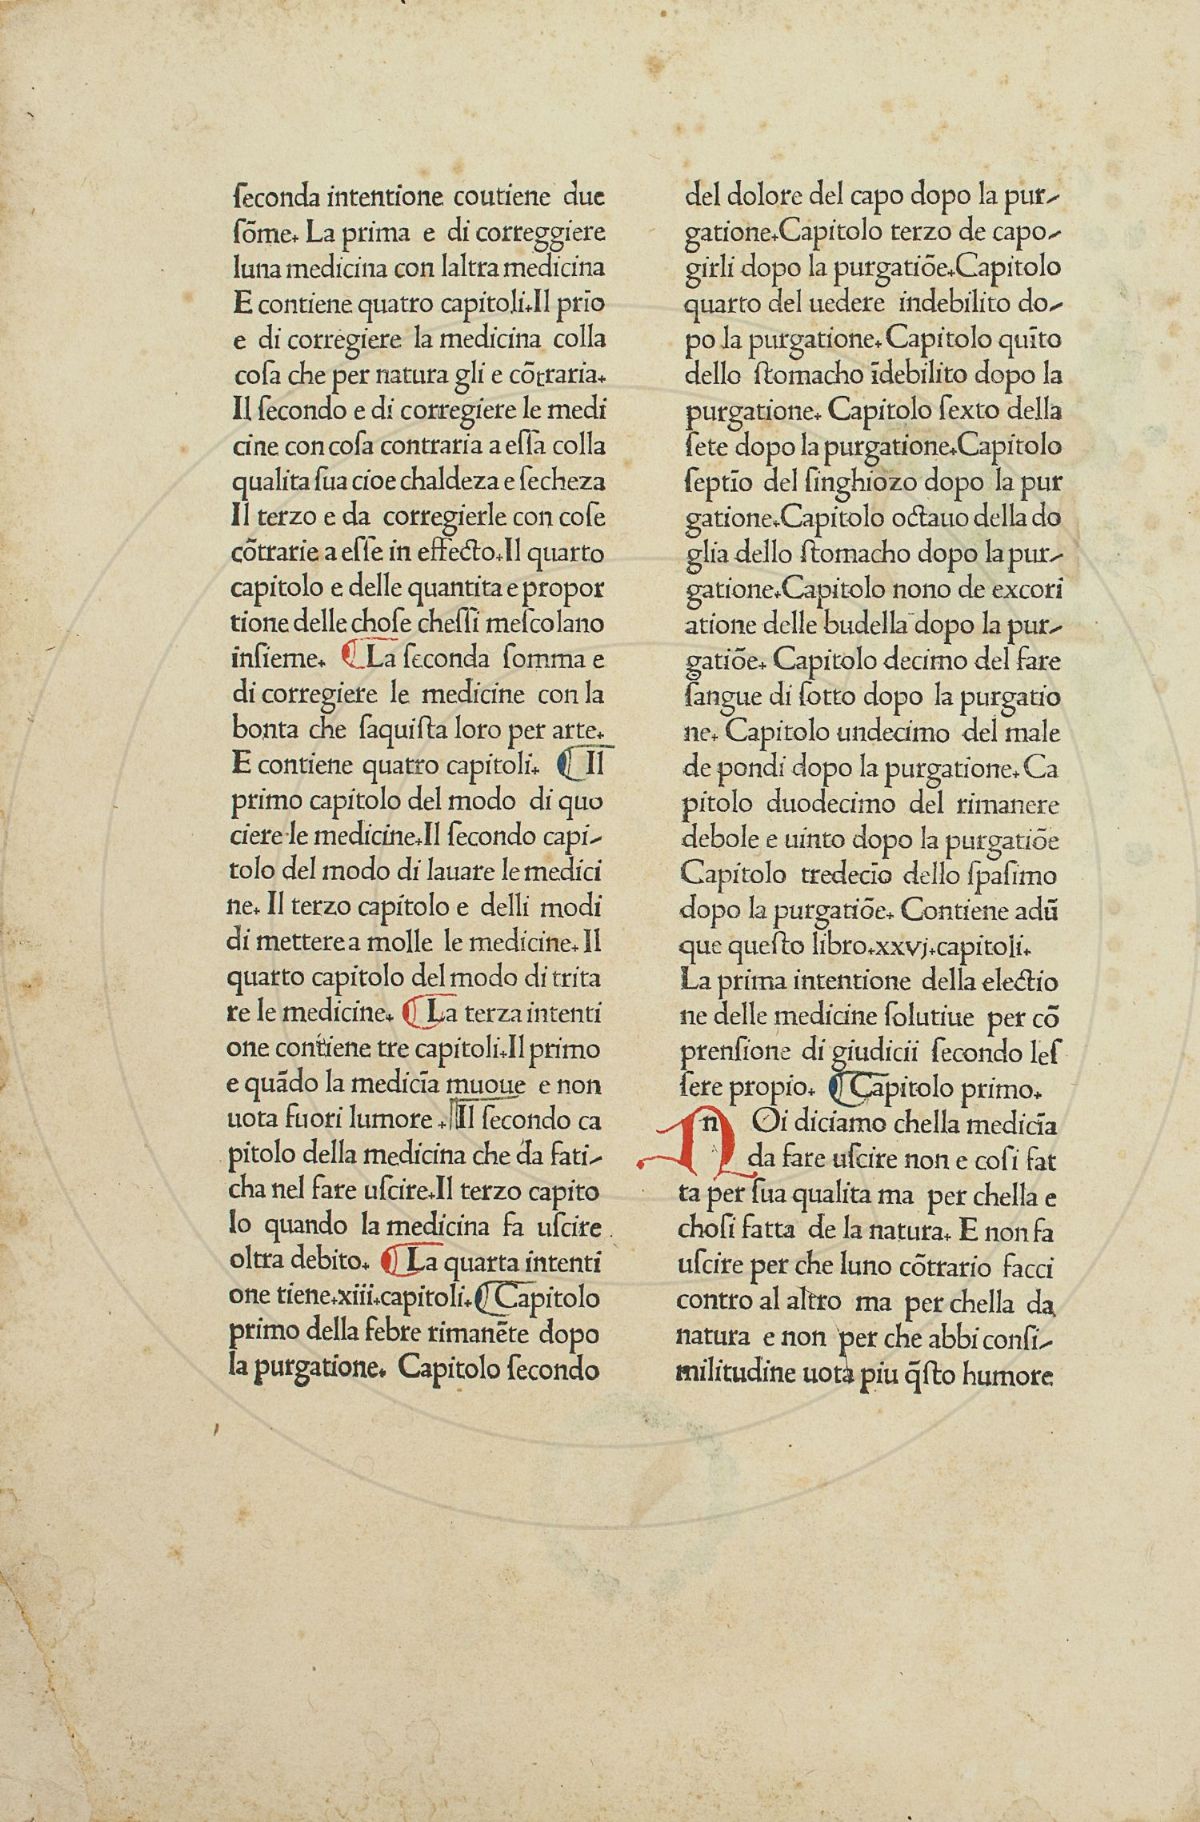 ſeconda intentione coutiene due
ſõme. La prima e di correggiere
luna medicina con laltra medicina
E contiene quatro capitoli.Il prīo
e di corregiere la medicina colla
coſa che per natura gli e cõtraria.
Il ſecondo e di corregiere le medi
cine con coſa contraria a eſſa colla
qualita ſua cioe chaldeza e ſecheza
Il terzo e da corregierle con coſe
cõtrarie a eſſe in effecto.Il quarto
capitolo e delle quantita e propor
tione delle choſe cheſſi meſcolano
inſieme. ¶ La ſeconda ſomma e
di corregiere le medicine con la
bonta che ſaquiſta loro per arte.
E contiene quatro capitoli. ¶ Il
primo capitolo del modo di quo
ciere le medicine.Il ſecondo capi-
tolo del modo di lauare le medici
ne. Il terzo capitolo e delli modi
di mettere a molle le medicine.Il
quarto capitolo del modo di trita
re le medicine. ¶ La terza intenti
one contiene tre capitoli.Il primo
e quãdo la medicīa muoue e non
uota fuori lumore . ¶ Il ſecondo ca
pitolo della medicina che da fati-
cha nel fare uſcire.Il terzo capito
lo quando la medicina fa uſcire
oltra debito. ¶ La quarta intenti
one tiene.xiii.capitoli.¶ Capitolo
primo della febre rimanẽte dopo
la purgatione. Capitolo ſecondo
del dolore del capo dopo la pur-
gatione.Capitolo terzo de capo-
girli dopo la purgatiõe.Capitolo
quarto del uedere indebilito do-
po la purgatione. Capitolo quīto
dello ſtomacho īdebilito dopo la
purgatione. Capitolo ſexto della
ſete dopo la purgatione.Capitolo
ſeptīo del ſinghiozo dopo la pur
gatione.Capitolo octauo della do
glia dello ſtomacho dopo la pur-
gatione.Capitolo nono de excori
atione delle budella dopo la pur-
gatiõe. Capitolo decimo del fare
ſangue di ſotto dopo la purgatio
ne. Capitolo undecimo del male
de pondi dopo la purgatione. Ca
pitolo duodecimo del rimanere
debole e uinto dopo la purgatiõe
Capitolo tredecīo dello ſpaſimo
dopo la purgatiõe. Contiene adũ
que queſto libro.xxvj.capitoli.
La prima intentione della electio
ne delle medicine ſolutiue per cõ
prenſione di giudicii ſecondo leſ
ſere propio. ¶ Capitolo primo.
NOi diciamo chella medicīa
da fare uſcire non e coſi fat
ta per ſua qualita ma per chella e
choſi fatta de la natura. E non fa
uſcire per che luno cõtrario facci
contro al altro ma per chella da
natura e non per che abbi conſi-
militudine uota piu q̃ſto humore